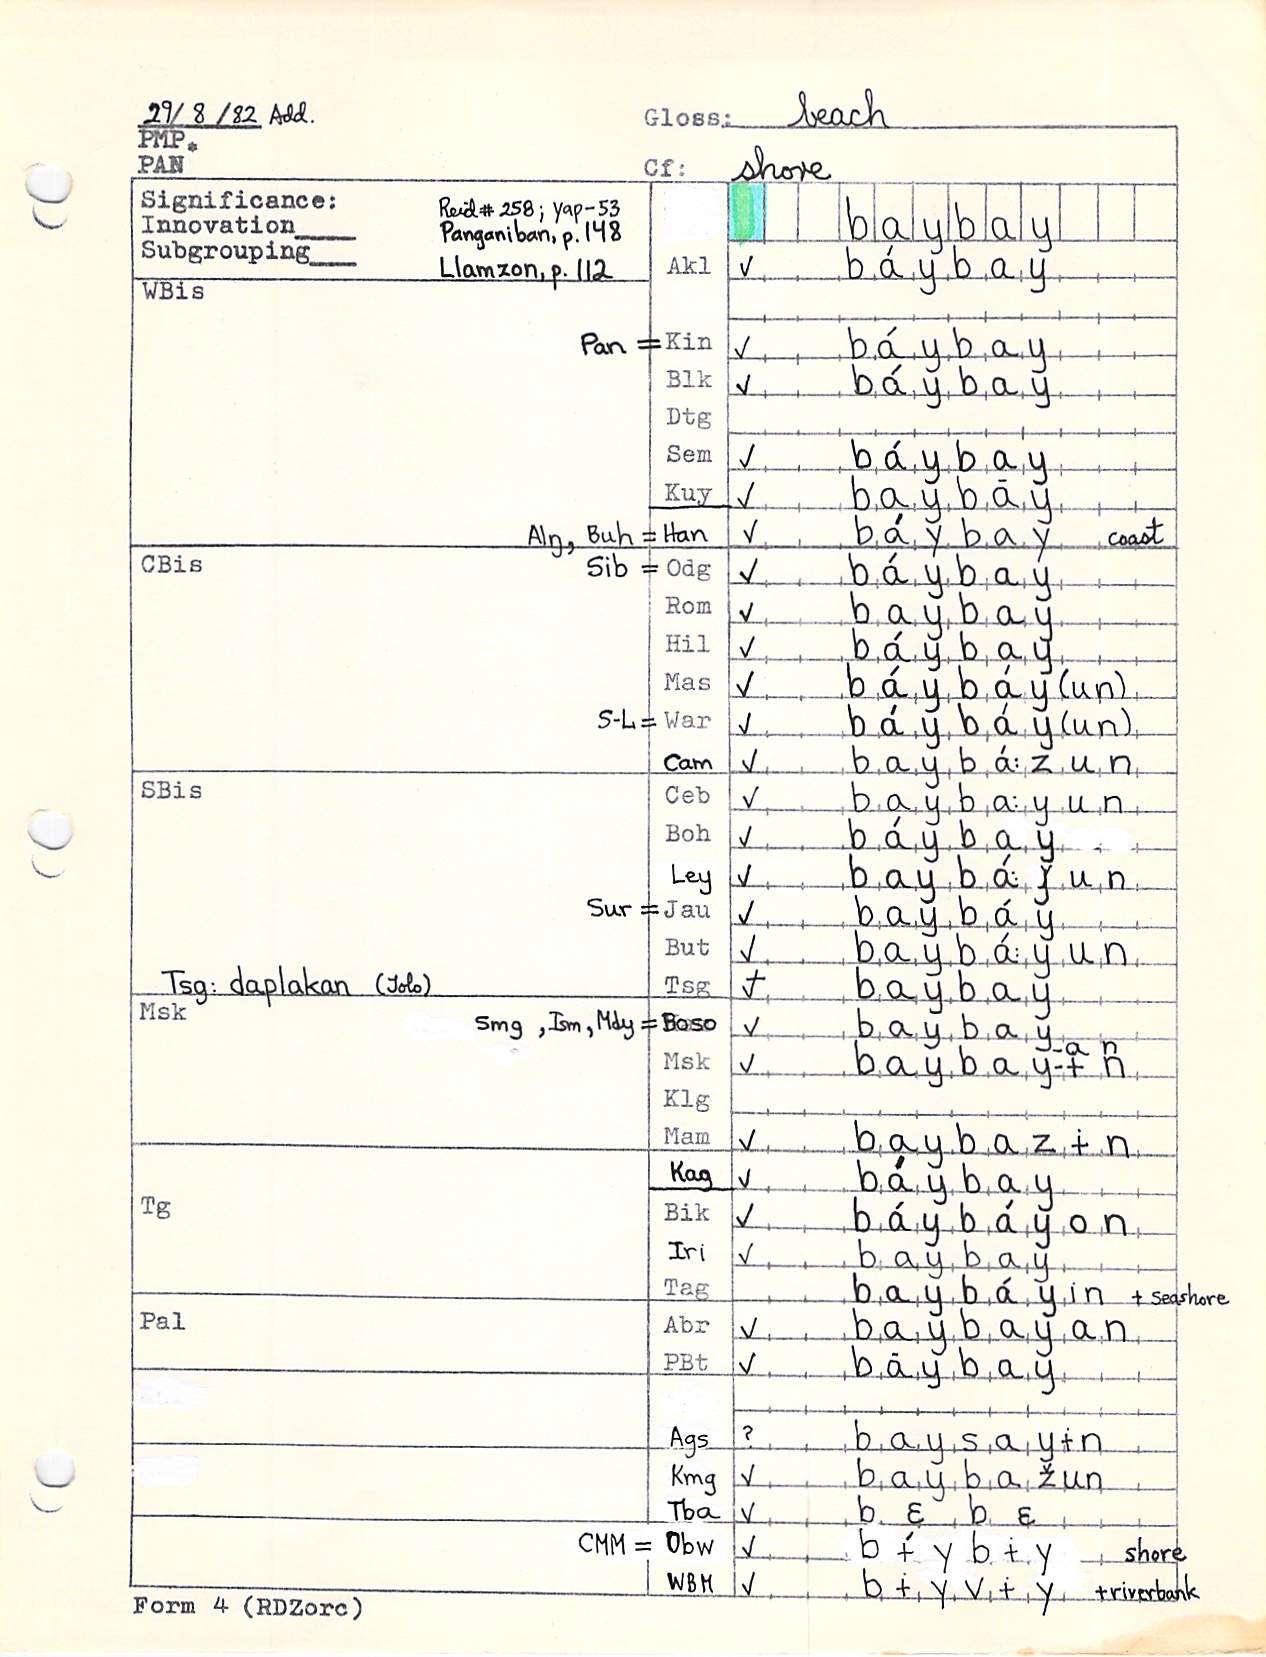 29/ 8 /82 Add.
Gloss: beach
PMP*
PAN
Cf: shore
Significance:
Innovation____
Subgrouping____
Reid# 258; Yap-53
Panganiban, p. 148
Llamzon, p. 112
baybay
Akl ✓ báybay
WBis
Pan = Kin ✓ báybay
Blk ✓ báybay
Dtg
Sem ✓ báybay
Kuy ✓ baybāy
Alŋ, Buh = Han ✓ báybay coast
CBis
Sib = Odg ✓ báybay
Rom ✓ baybay
Hil ✓ báybay
Mas ✓ báybáy(un)
S-L = War ✓ báybáy(un)
Cam ✓ baybá:zun
SBis
Ceb ✓ bayba:yun
Boh ✓ báybay
Ley ✓ baybá: un
Sur = Jau ✓ baybáy
But ✓ baybá:yun
Tsg: daplakan (Jolo)
Tsg baybay
Msk
Smg, Ism, Mdy = Boso ✓ baybay
-an
Msk ✓ baybay-ɨn
Klg
Mam ✓ baybazɨn
Kag ✓ báybay
Tg
Bik ✓ báybáyon
Iri ✓ baybay
Tag baybáyin + seashore
Pal
Abr ✓ baybayan
PBt ✓ bāybay
Ags ? baysayɨn
Kmg ✓ baybažun
Tba ✓ bɛbɛ
CMM = Obw ✓ bɨ́ybɨy shore
WBM ✓ bɨyvɨy + riverbank
Form 4 (RDZorc)